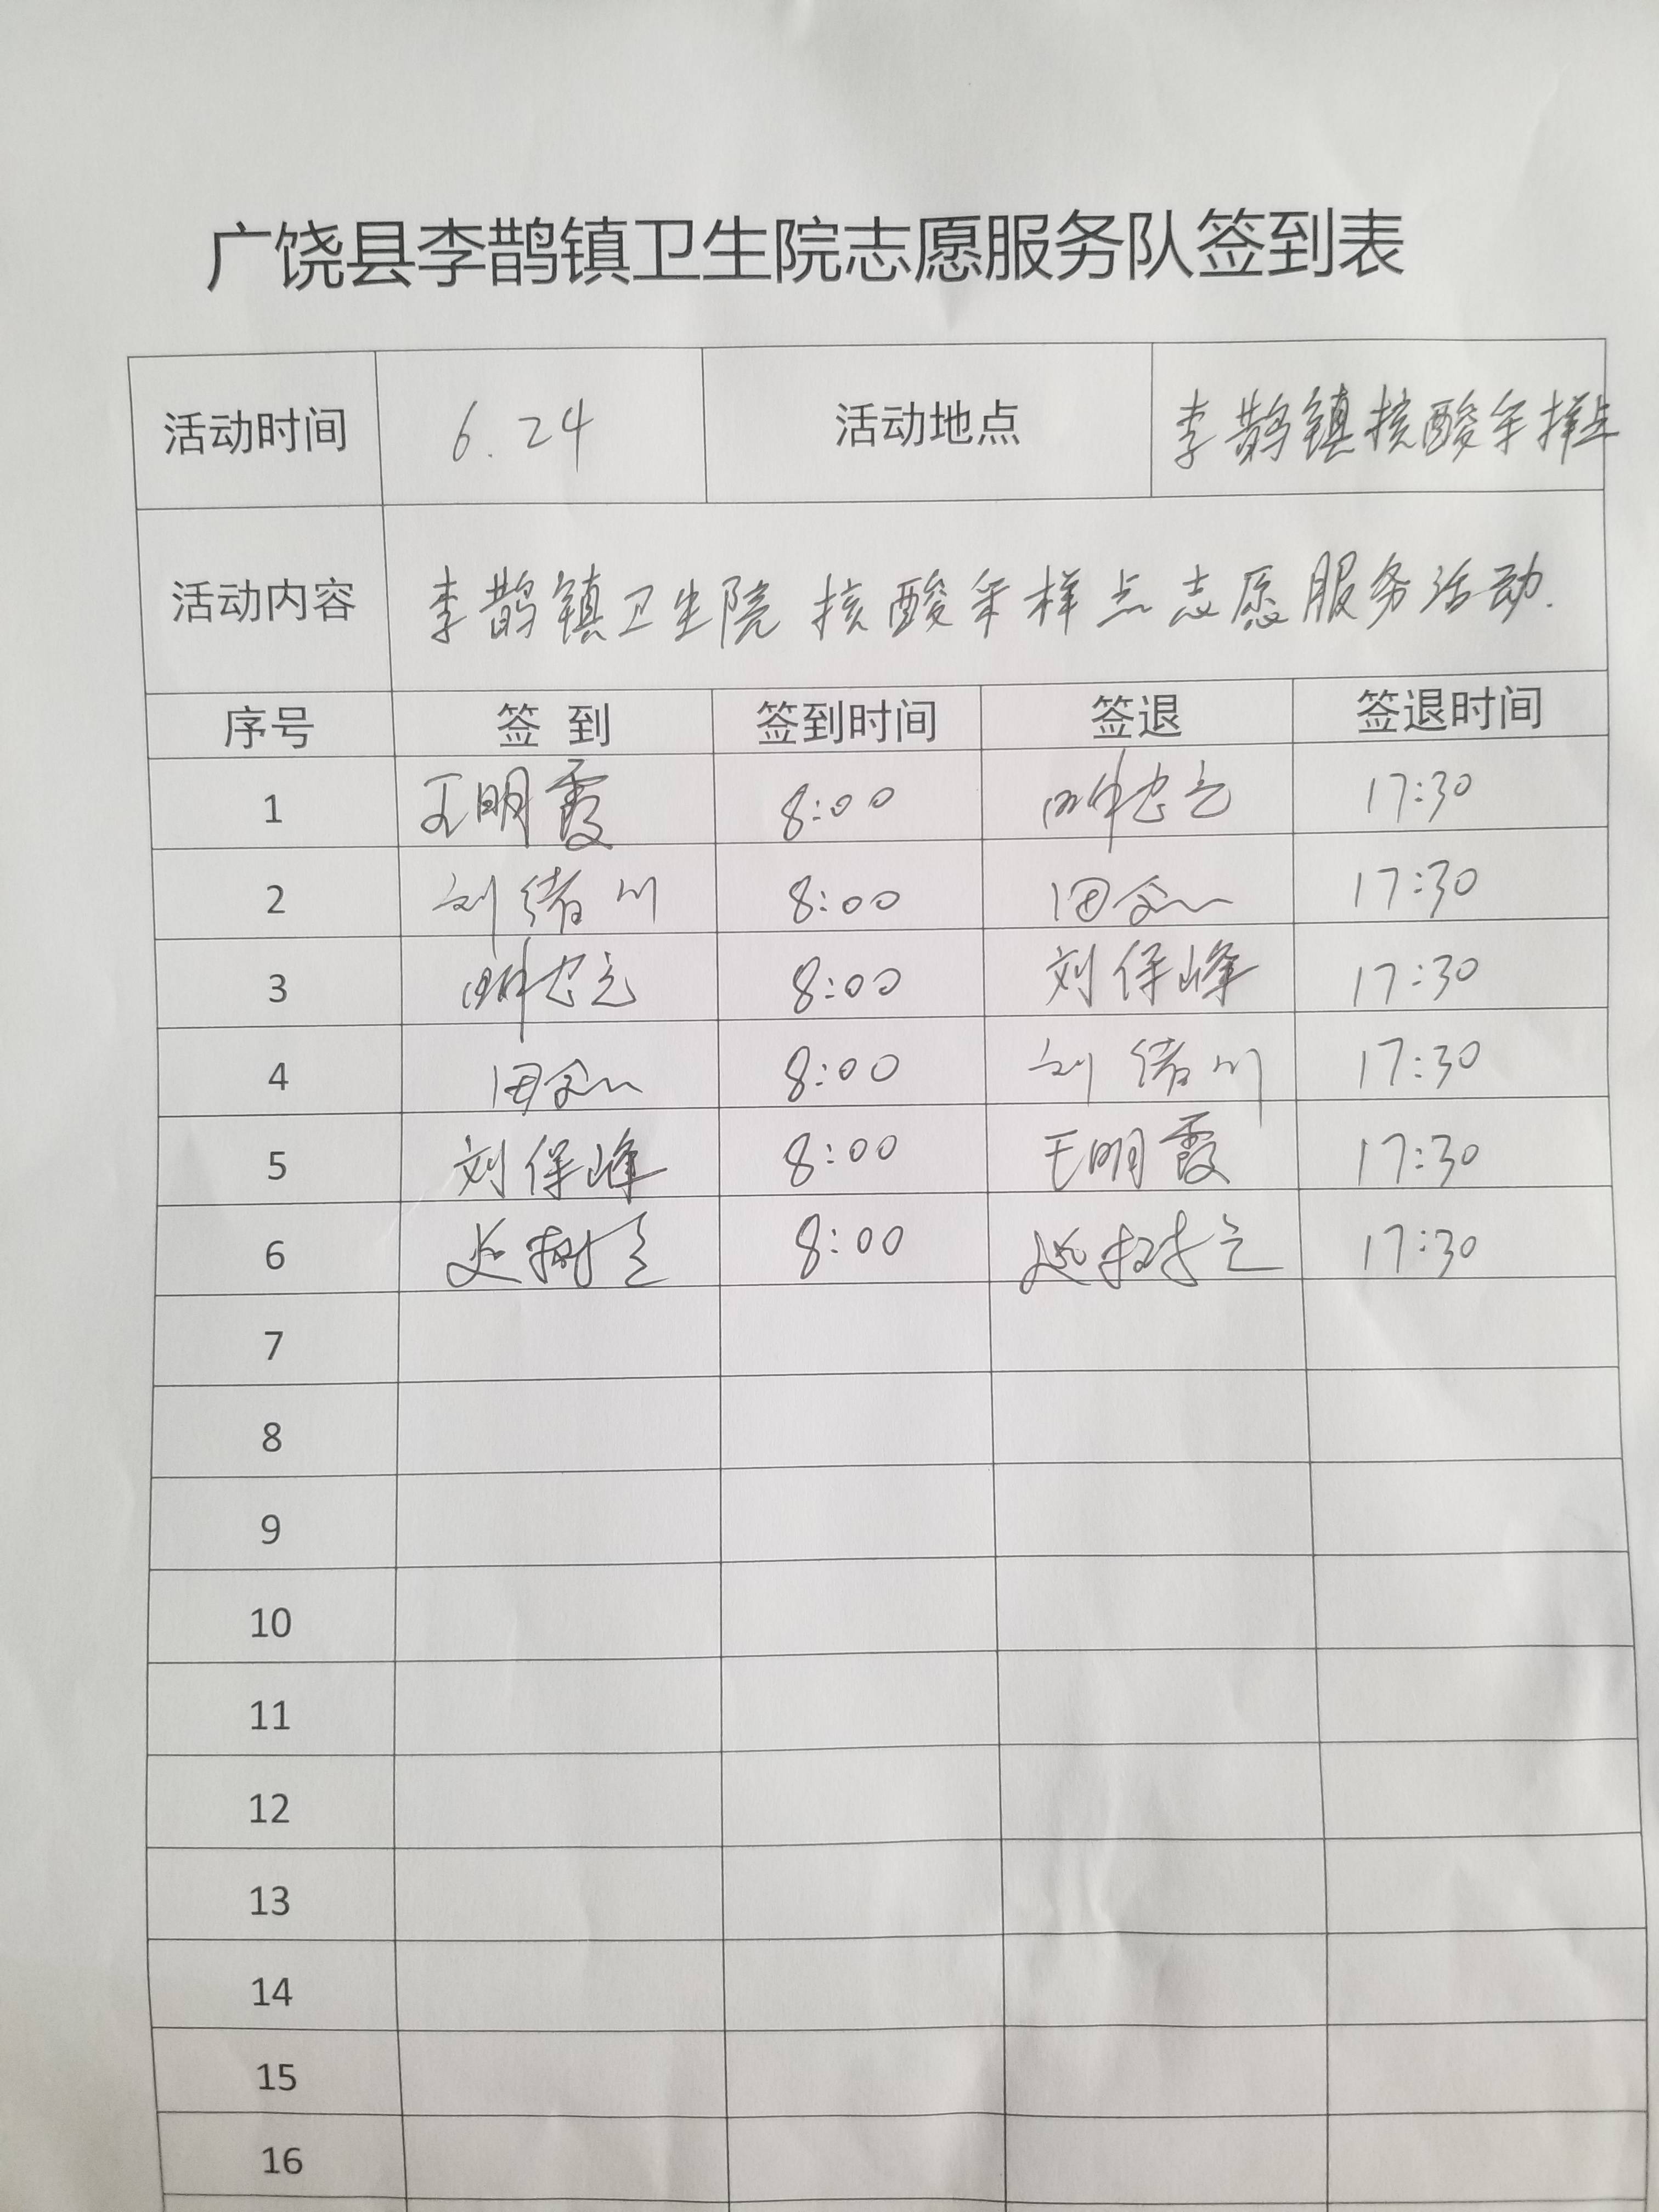 广饶县李鹊镇卫生院志愿服务队签到表
活动时间 6.24 活动地点 李鹊镇核酸采样点
活动内容 李鹊镇卫生院核酸采样点志愿服务活动.
序号 签到 签到时间 签退 签退时间
1 王明霞 8:00 17:30
2 刘绪川 8:00 17:30
3 8:00 刘保峰 17:30
4 8:00 刘绪川 17:30
5 刘保峰 8:00 王明霞 17:30
6 8:00 17:30
7
8
9
10
11
12
13
14
15
16